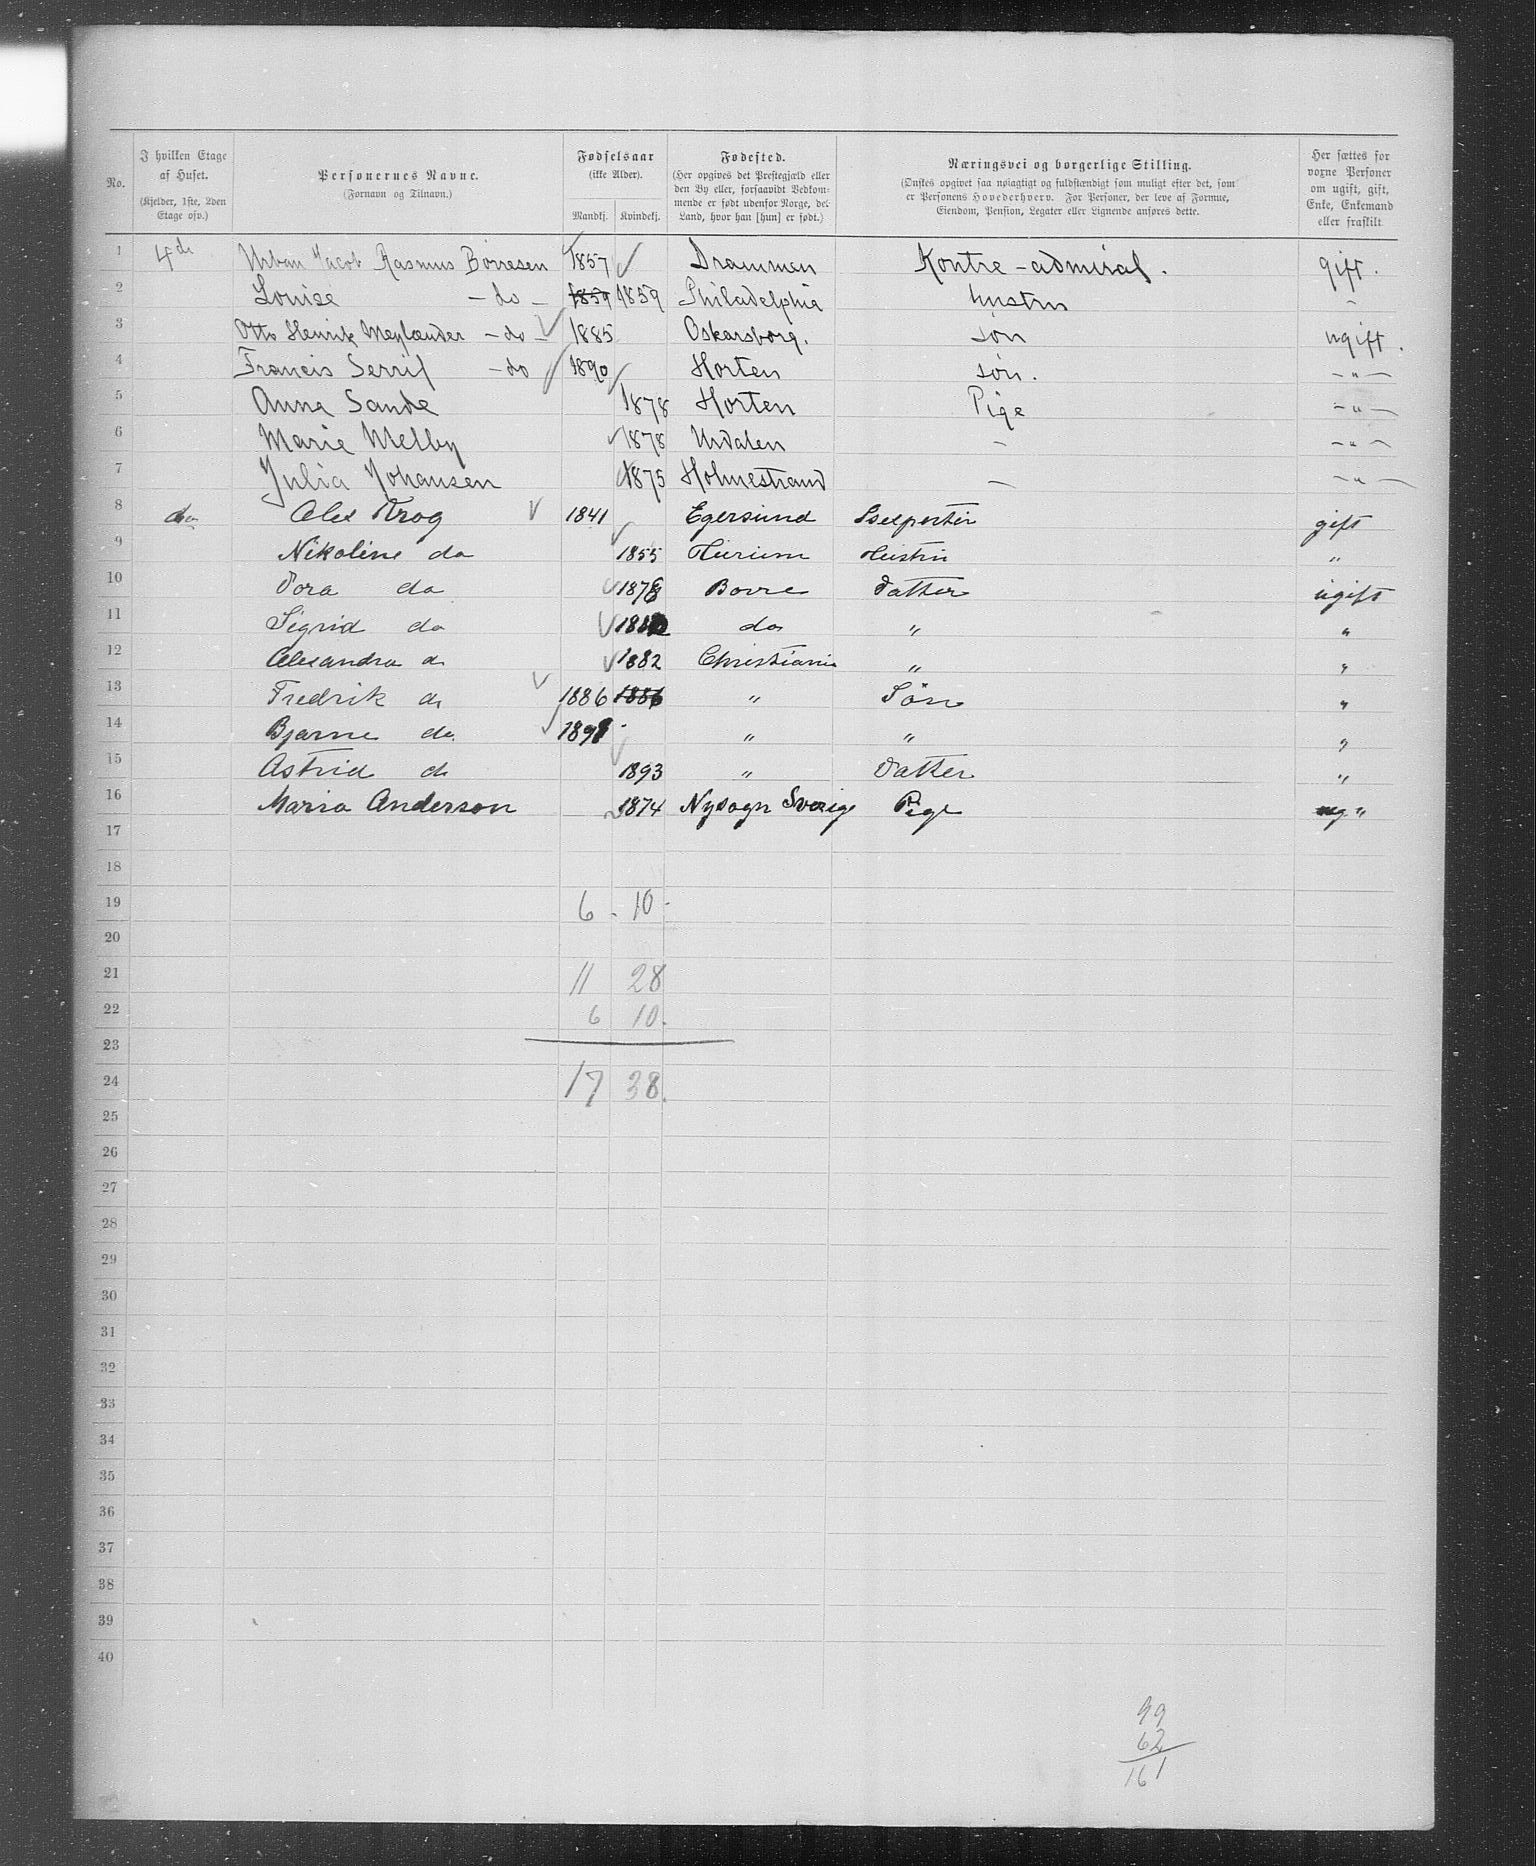 No.
I hvilken Etage af Huset.
(Kjelder, 1ste, 2den Etage osv.)
Personernes Navne.
(Fornavn og Tilnavn.)
Fødselsaar
(ikke Alder).
Mandkj. Kvindekj.
Fødested.
(Her opgives det Prestegjæld eller
den By eller, forsaavidt Vedkom-
mende er født udenfor Norge, det
Land, hvor han [hun] er født.)
Næringsvei og borgerlige Stilling.
(Ønskes opgivet saa nøiagtigt og fuldstændigt som muligt efter det, som
er Personens Hovederhverv. For Personer, der leve af Formue,
Eiendom, Pension, Legater eller Lignende anføres dette.
Her sættes for
voxne Personer
om ugift, gift,
Enke, Enkemand
eller fraskilt.
1 4de Urban Jacob Rasmus Børresen 1857 Drammen Kontre-admiral. gift.
2 Louise – do – 1859 1859 Philadelphia hustru –
3 Otto Henrik Meylænder – do – 1885 Oskarsborg. søn ugift.
4 Francis Serril – do 1890 Horten søn. – " –
5 Anna Sande 1878 Horten Pige – " –
6 Marie Melby 1878 Urdalen – – " –
7 Julia Johansen 1875 Holmestrand – – " –
8 do Alex Krog 1841 Egersund gift
9 Nikoline do 1855 Hurum Hustru "
10 Dora do 1878 Borre Datter ugift
11 Sigrid do do " "
12 Alexandra do 1882 Christiania " "
13 Fredrik do 1886 1886 " Søn "
14 Bjarne do 1891 " " "
15 Astrid do 1893 " Datter "
16 Maria Anderson 1874 Nysogn Sverige Pige ug "
17
18
19 6 . 10
20
21 11 28
22 6 10.
23
24 17 38.
25
26
27
28
29
30
31
32
33
34
35
36
37
38
39
40
99
62
161